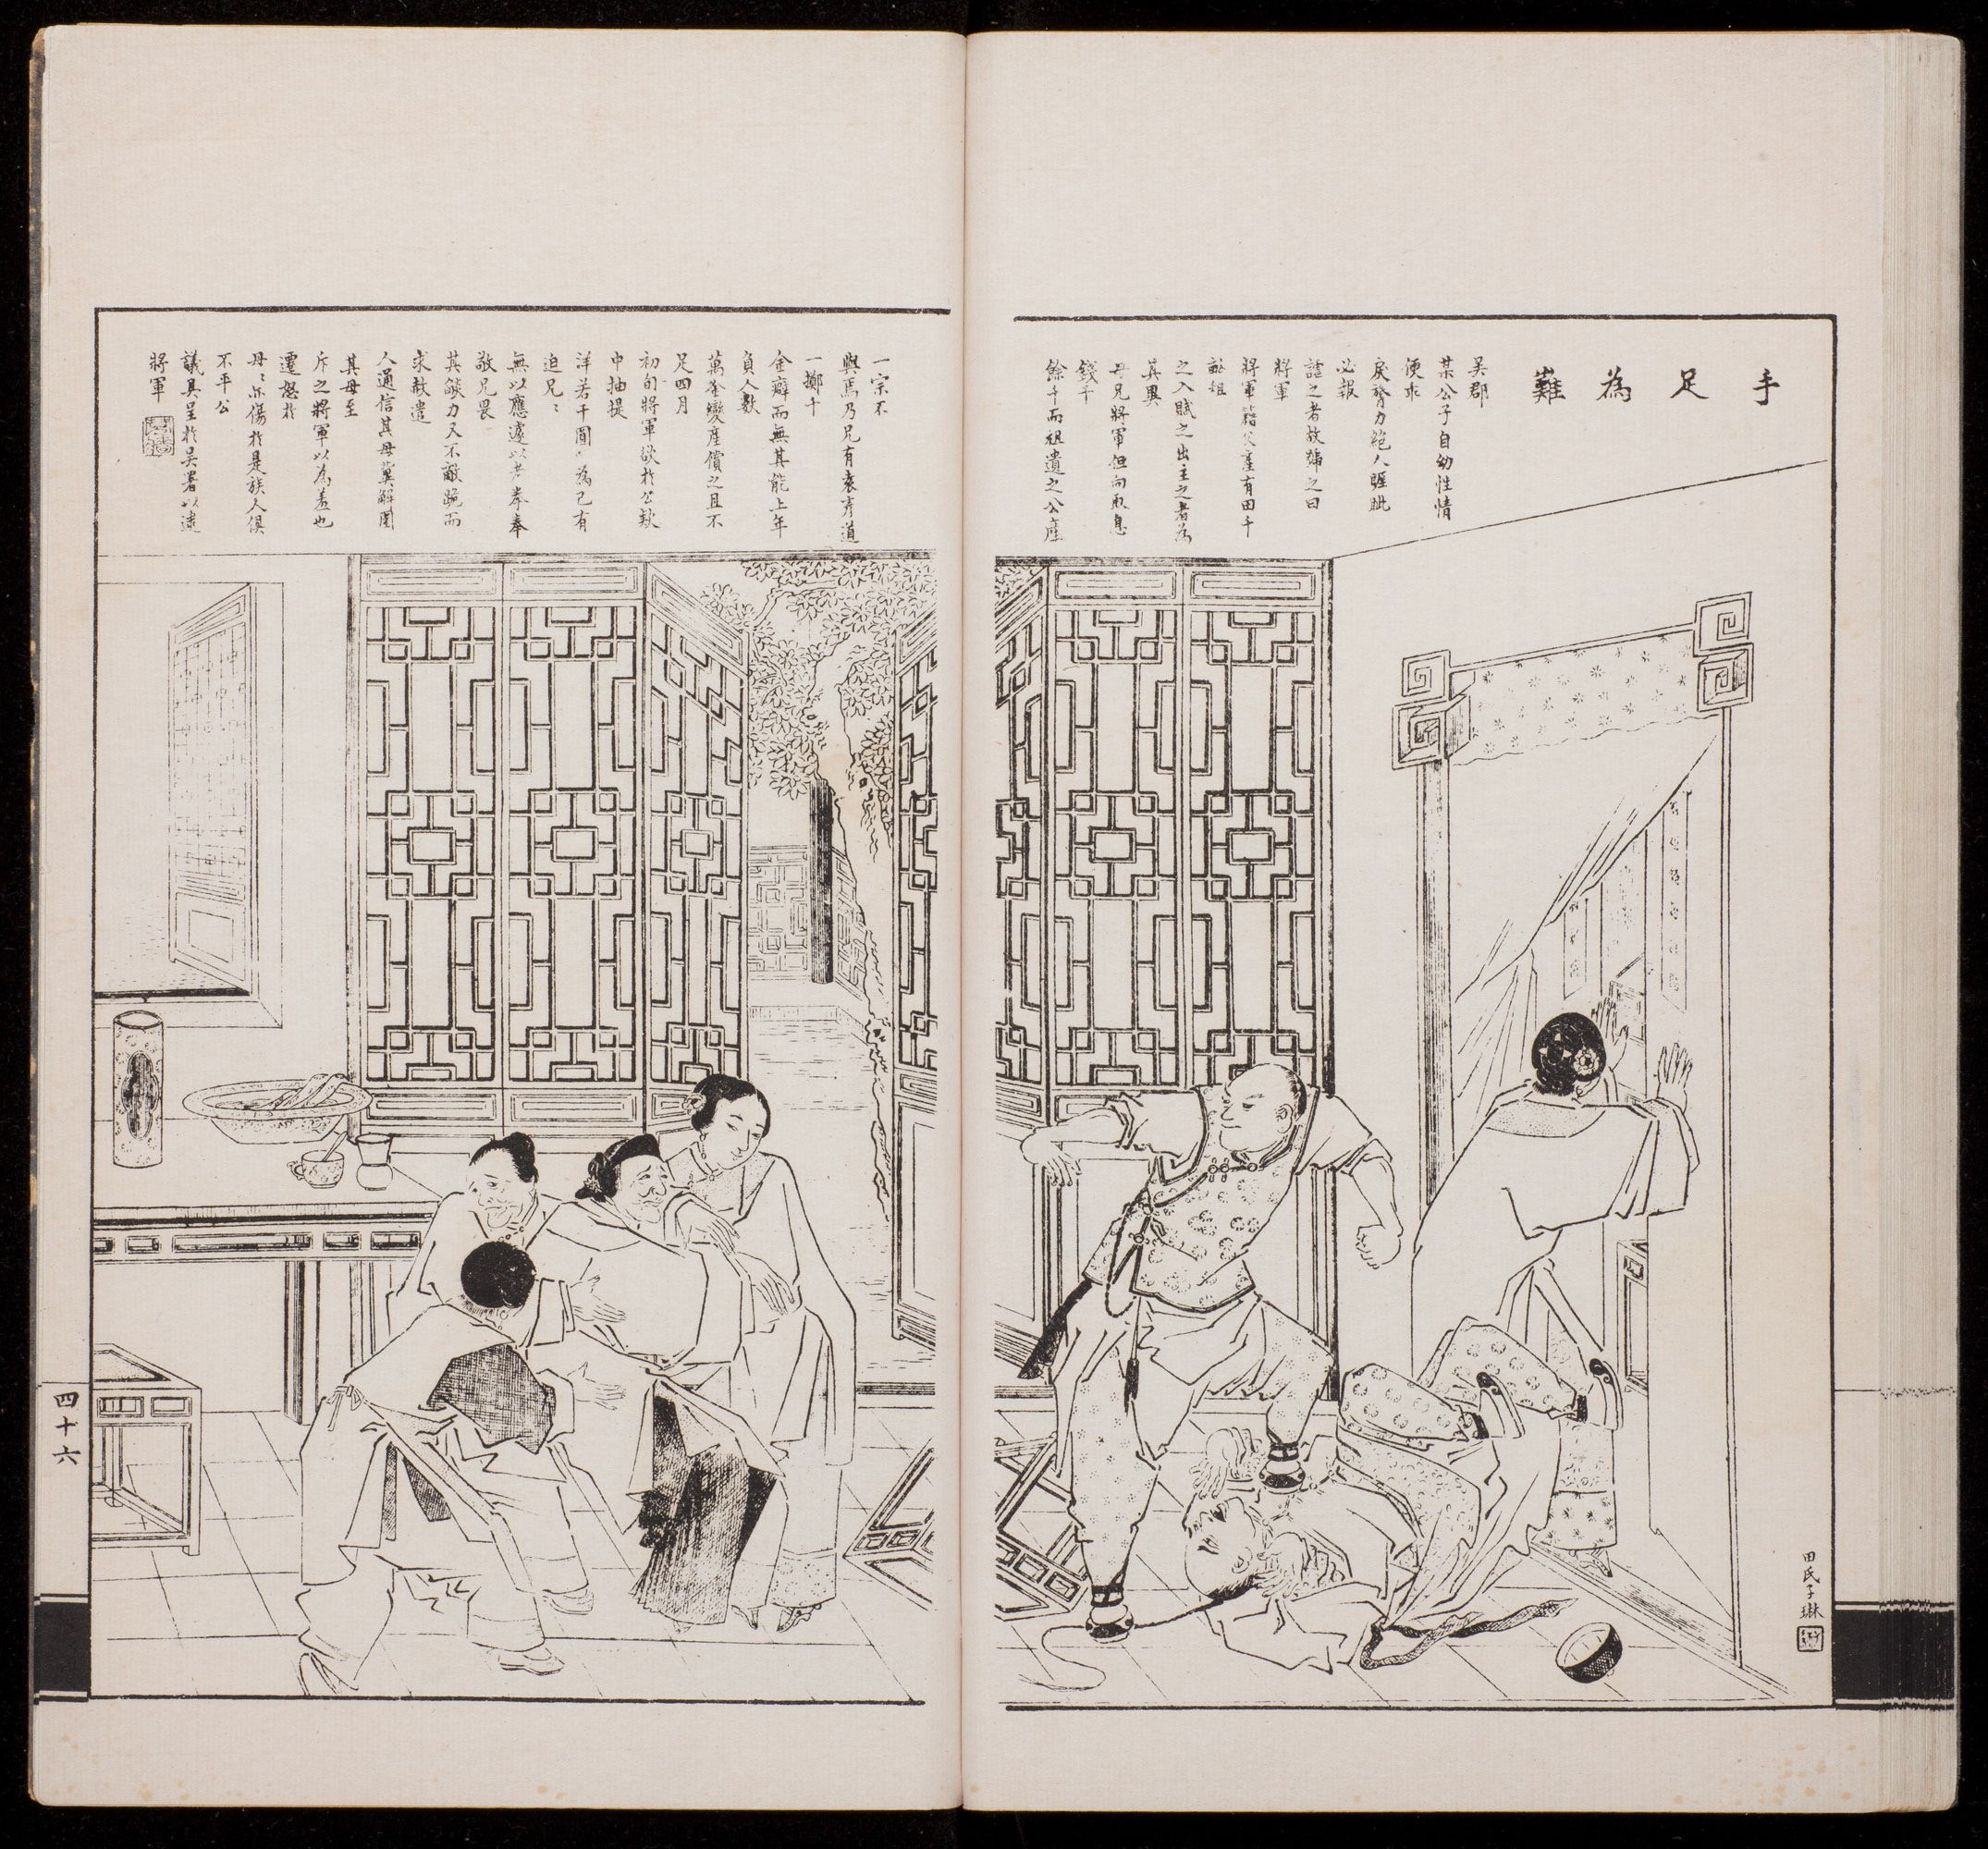 手足為難
吳郡
某公子自幼性情
便乖
戾膂力絕人睚眦
必報
謹之者故號之曰
將軍
將軍藉父產有田千
畝租
之入賦之出主之者為
其異
母兄將軍但向取息
錢千
餘千而祖遺之公產
一宗不
與焉乃兄有袁彥道
一擲千
金癖而無其能上年
負人數
萬金變產償之且不
足四月
初旬將軍欲於公款
中抽提
洋若干圓為己有
迫兄〻
無以應遽以老拳奉
敬兄畏
其餤力又不敵跪而
求赦遣
人通信其母冀解圍
其母至
斥之將軍以為羞也
遷怒於
母〻亦傷於是族人俱
不平公
議具呈於吳署以逮
將軍
田氏子琳
四十六